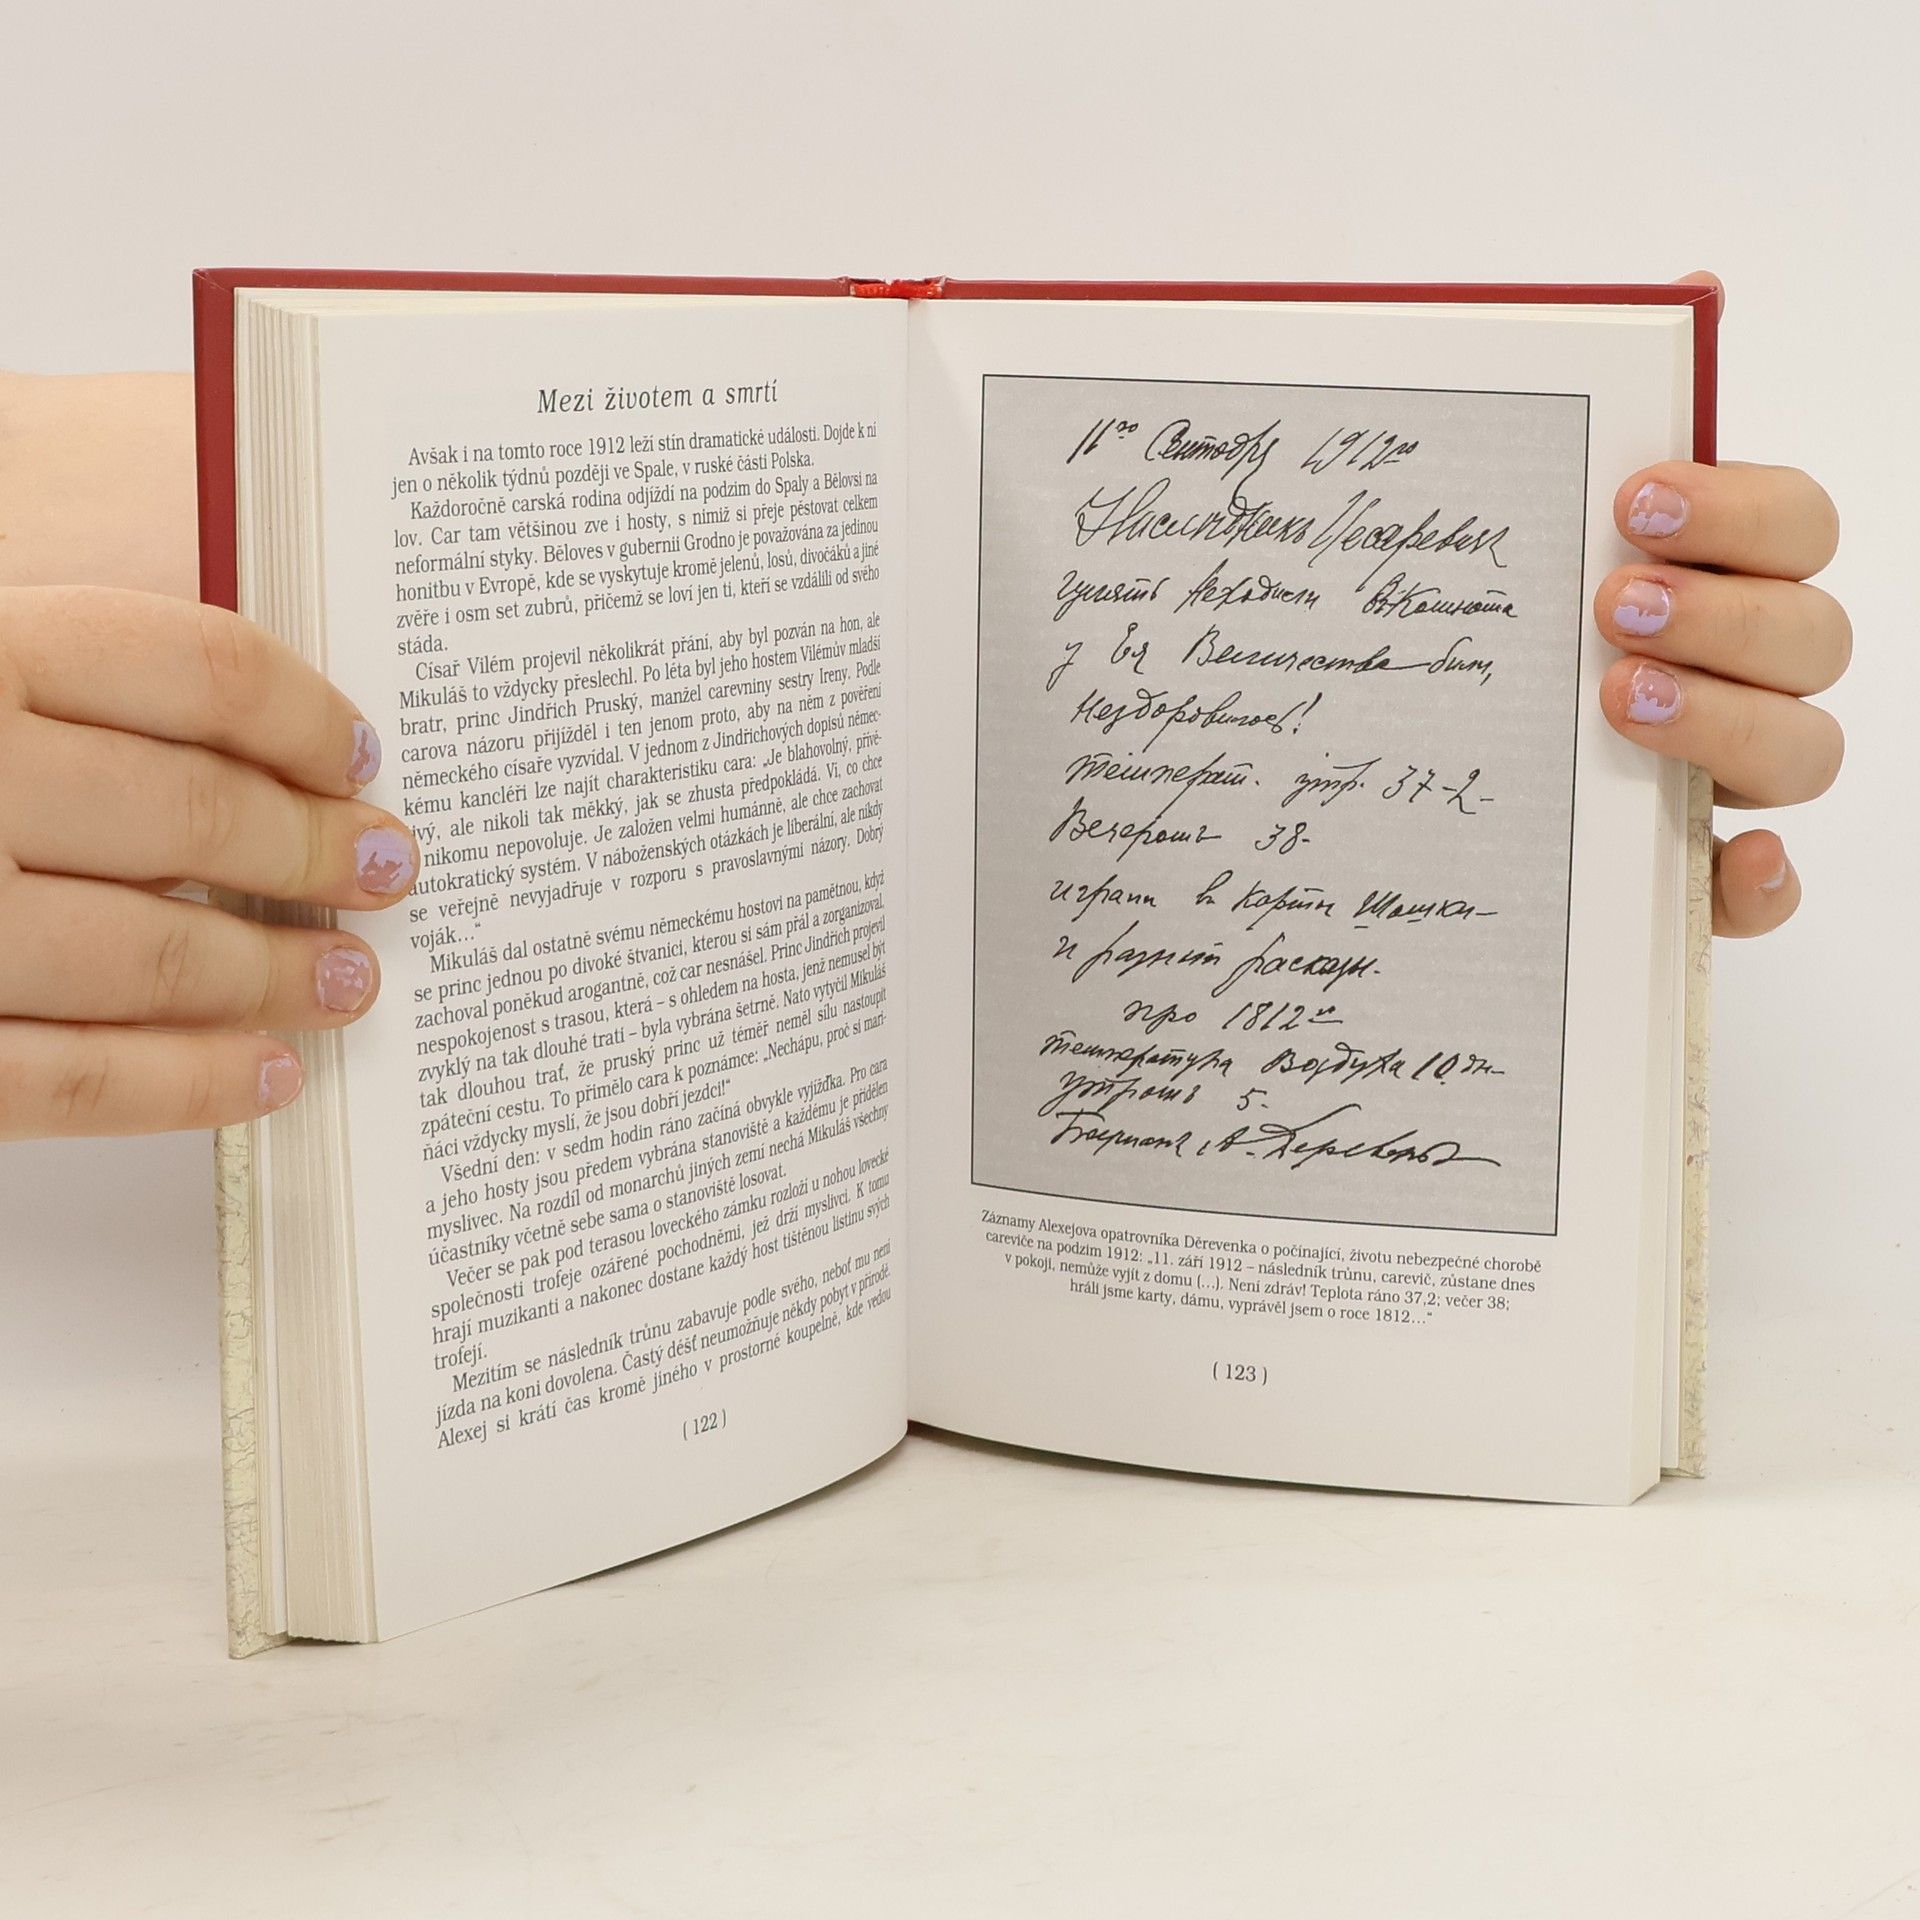 Mezi životem a smrtí
Avšak i na tomto roce 1912 leží stín dramatické události. Dojde k ní
jen o několik týdnů později ve Spale, v ruské části Polska.
Každoročně carská rodina odjíždí na podzim do Spaly a Bělovsi na
lov. Car tam většinou zve i hosty, s nimiž si přeje pěstovat celkem
neformální styky. Běloves v gubernii Grodno je považována za jedinou
honitbu v Evropě, kde se vyskytuje kromě jelenů, losů, divočáků a jiné
zvěře i osm set zubrů, přičemž se loví jen ti, kteří se vzdálili od svého
stáda.
Císař Vilém projevil několikrát přání, aby byl pozván na hon, ale
Mikuláš to vždycky přeslechl. Po léta byl jeho hostem Vilémův mladší
bratr, princ Jindřich Pruský, manžel carevniny sestry Ireny. Podle
carova názoru přijížděl i ten jenom proto, aby na něm z pověření
německého císaře vyzvídal. V jednom z Jindřichových dopisů němec-
kému kancléři lze najít charakteristiku cara: „Je blahovolný, přívě-
ivý, ale nikoli tak měkký, jak se zhusta předpokládá. Ví, co chce
nikomu nepovoluje. Je založen velmi humánně, ale chce zachovat
autokratický systém. V náboženských otázkách je liberální, ale nikdy
se veřejně nevyjadřuje v rozporu s pravoslavnými názory. Dobrý
voják...“
Mikuláš dal ostatně svému německému hostovi na pamětnou, když
se princ jednou po divoké štvanici, kterou si sám přál a zorganizoval,
zachoval poněkud arogantně, což car nesnášel. Princ Jindřich projevil
nespokojenost s trasou, která – s ohledem na hosta, jenž nemusel být
zvyklý na tak dlouhé trati – byla vybrána šetrně. Nato vytyčil Mikuláš
tak dlouhou trať, že pruský princ už téměř neměl sílu nastoupit
zpáteční cestu. To přimělo cara k poznámce: „Nechápu, proč si mari-
ňáci vždycky myslí, že jsou dobří jezdci!“
Všední den: v sedm hodin ráno začíná obvykle vyjížďka. Pro cara
a jeho hosty jsou předem vybrána stanoviště a každému je přidělen
myslivec. Na rozdíl od monarchů jiných zemí nechá Mikuláš všechny
účastníky včetně sebe sama o stanoviště losovat.
Večer se pak pod terasou loveckého zámku rozloží u nohou lovecké
společnosti trofeje ozářené pochodněmi, jež drží myslivci. K tomu
hrají muzikanti a nakonec dostane každý host tištěnou listinu svých
trofejí.
Mezitím se následník trůnu zabavuje podle svého, neboť mu není
jízda na koni dovolena. Častý déšť neumožňuje někdy pobyt v přírodě.
Alexej si krátí čas kromě jiného v prostorné koupelně, kde vedou
( 122 )
11го Сентября 1912го
Наследникъ Цесаревичъ
гулять Не ходили
у Ея Величества были,
Нездоровилось!
температ. утр. 37-2-
Вечеромъ 38-
играли въ Карты Шашки-
и разныя расказы-
про 1812го
температура Воздуха 10 дн-
утромъ 5.
Боцманъ, А. Деревенько
Záznamy Alexejova opatrovníka Děrevenka o počínající, životu nebezpečné chorobě
careviče na podzim 1912: „11. září 1912 – následník trůnu, carevič, zůstane dnes
v pokoji, nemůže vyjít z domu (...). Není zdráv! Teplota ráno 37,2; večer 38;
hráli jsme karty, dámu, vyprávěl jsem o roce 1812...“
( 123 )